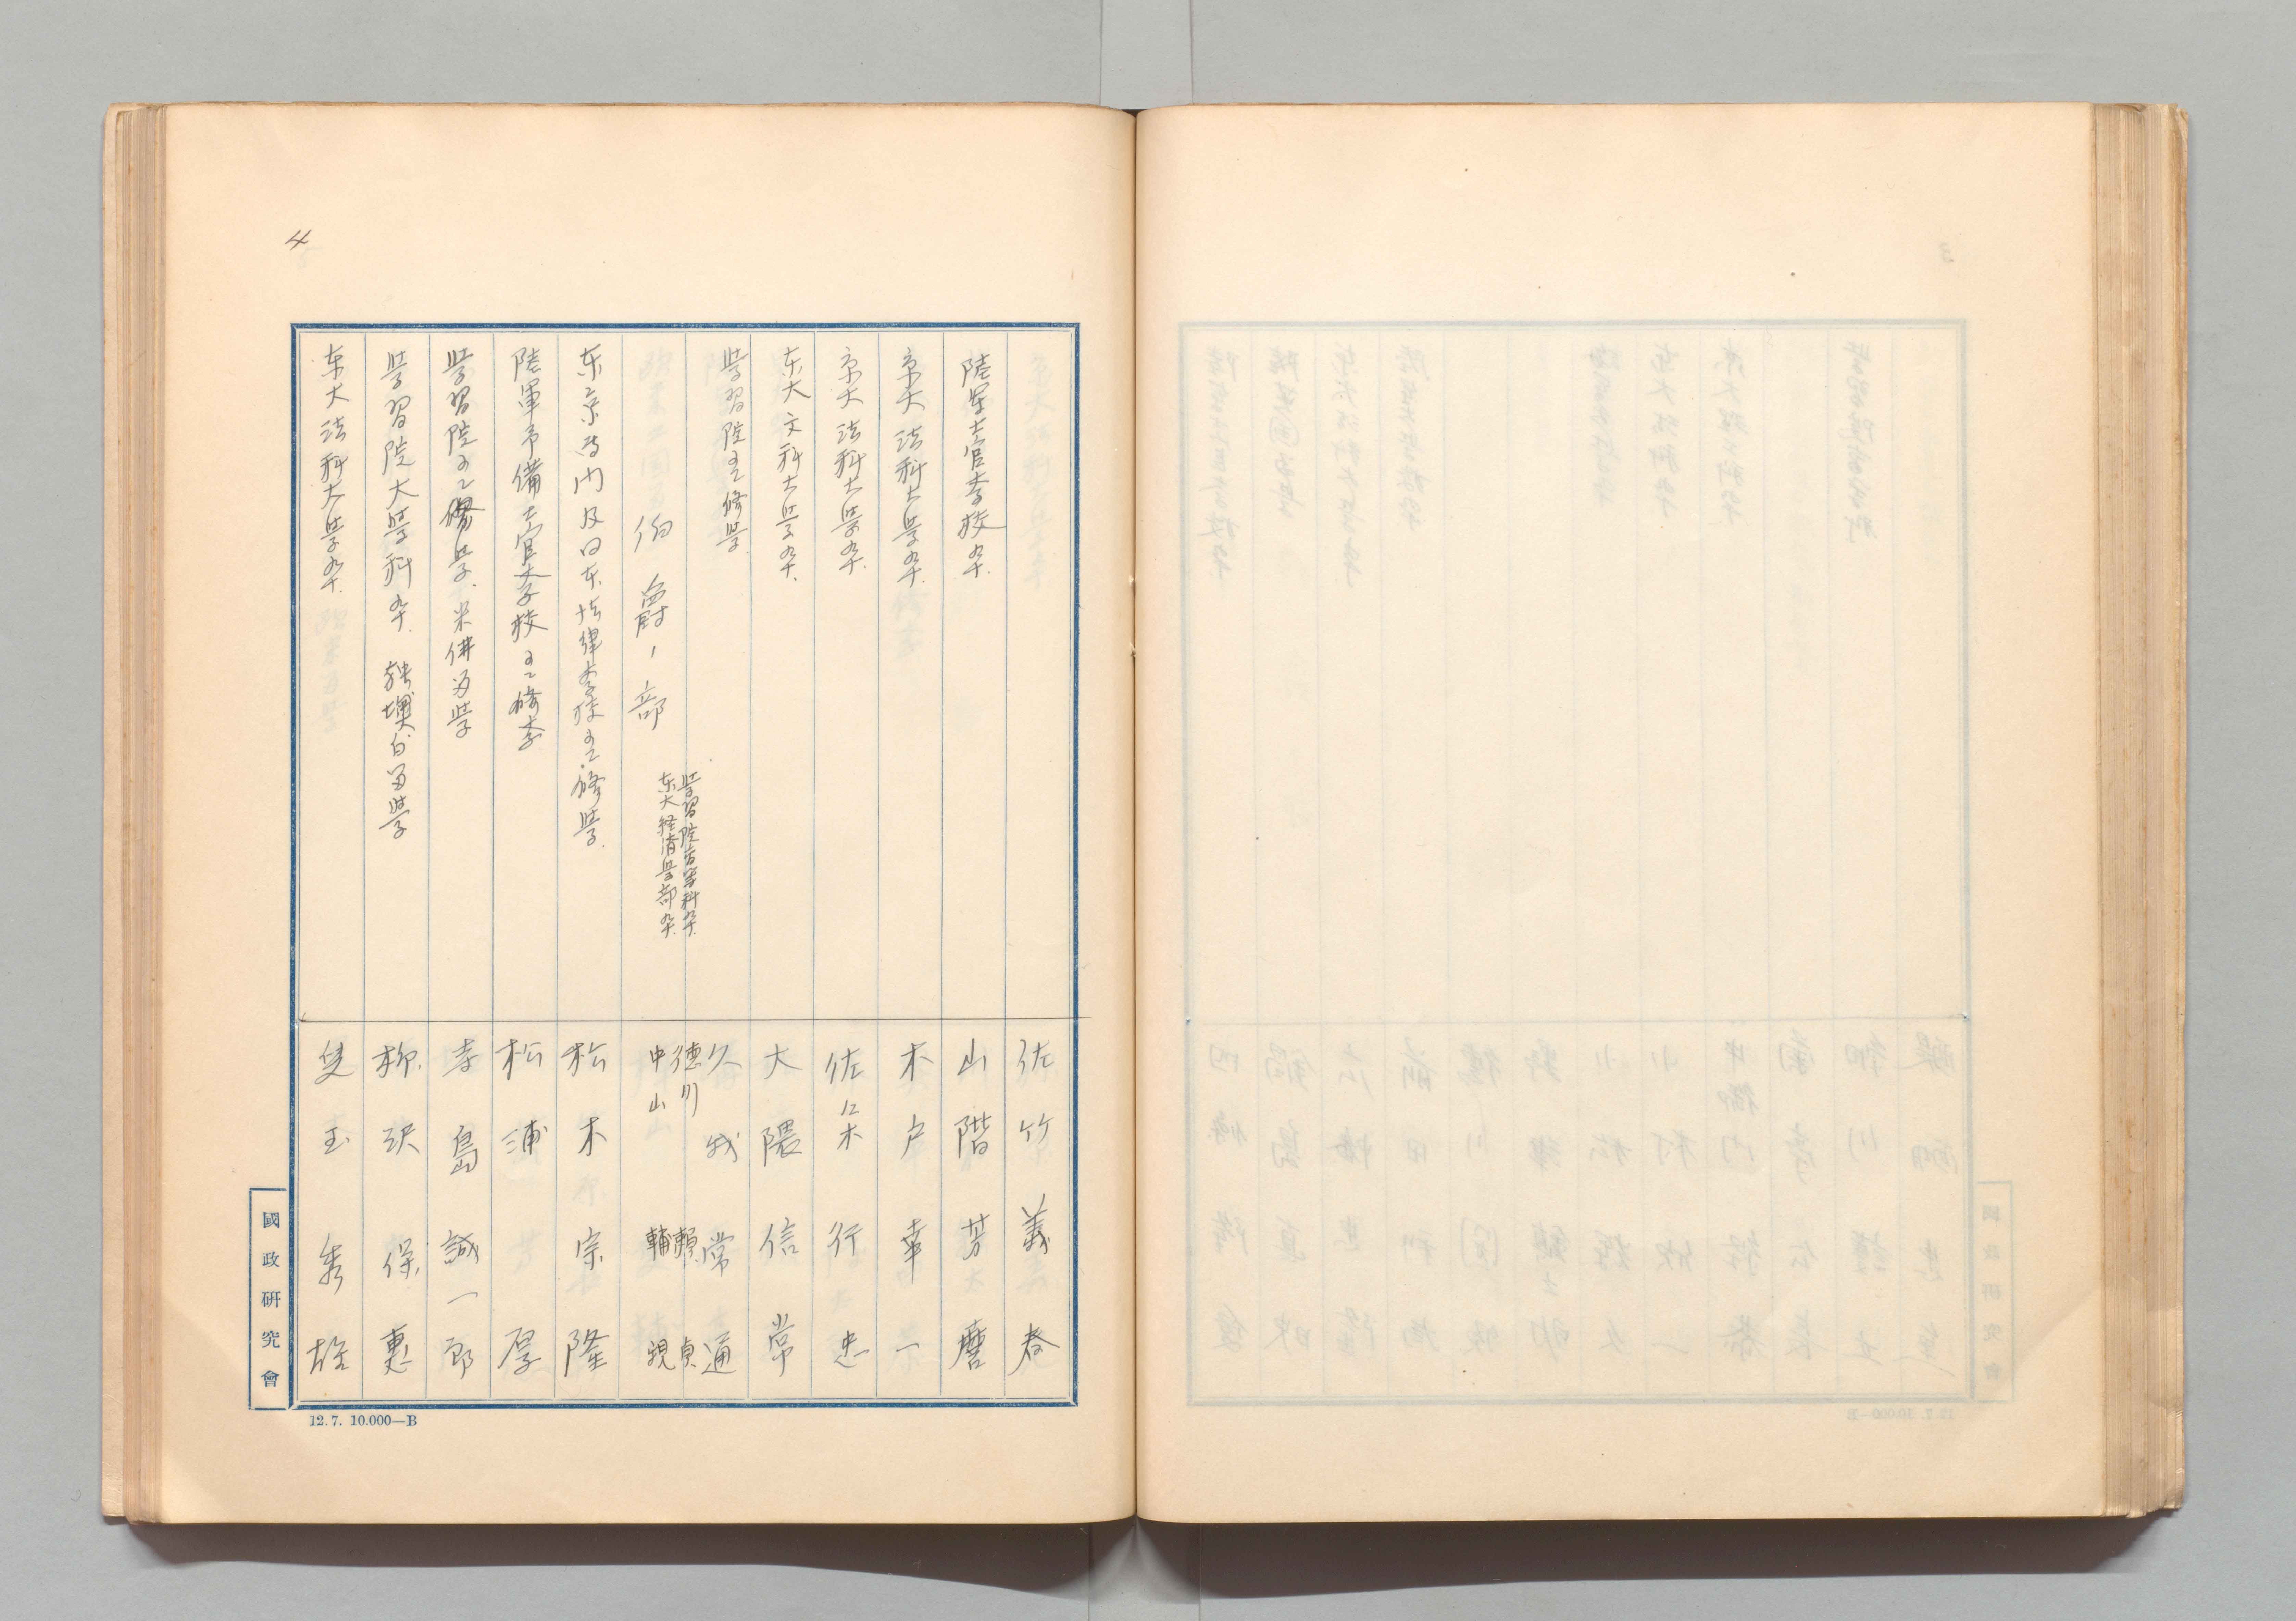 4
佐竹義春
陸軍士官学校卒. 山階芳麿
京大法科大學卒. 木戸幸一
京大法科大學卒. 佐々木行忠
東大文科大學卒. 大隈信常
學習院 修學 久我常通
學習院高等科卒. 徳川頼貞
伯爵ノ部
東大経済學部卒. 中山輔親
東京 内及日本法律学校 修學. 松木宗隆
陸軍予備士官学校 修学 松浦厚
學習院 修學、米佛留學 寺島誠一郎
學習院大學科卒. 独墺白留學 柳沢保惠
東大法科大學卒. 児玉秀雄
國政研究會
12. 7. 10.000—B